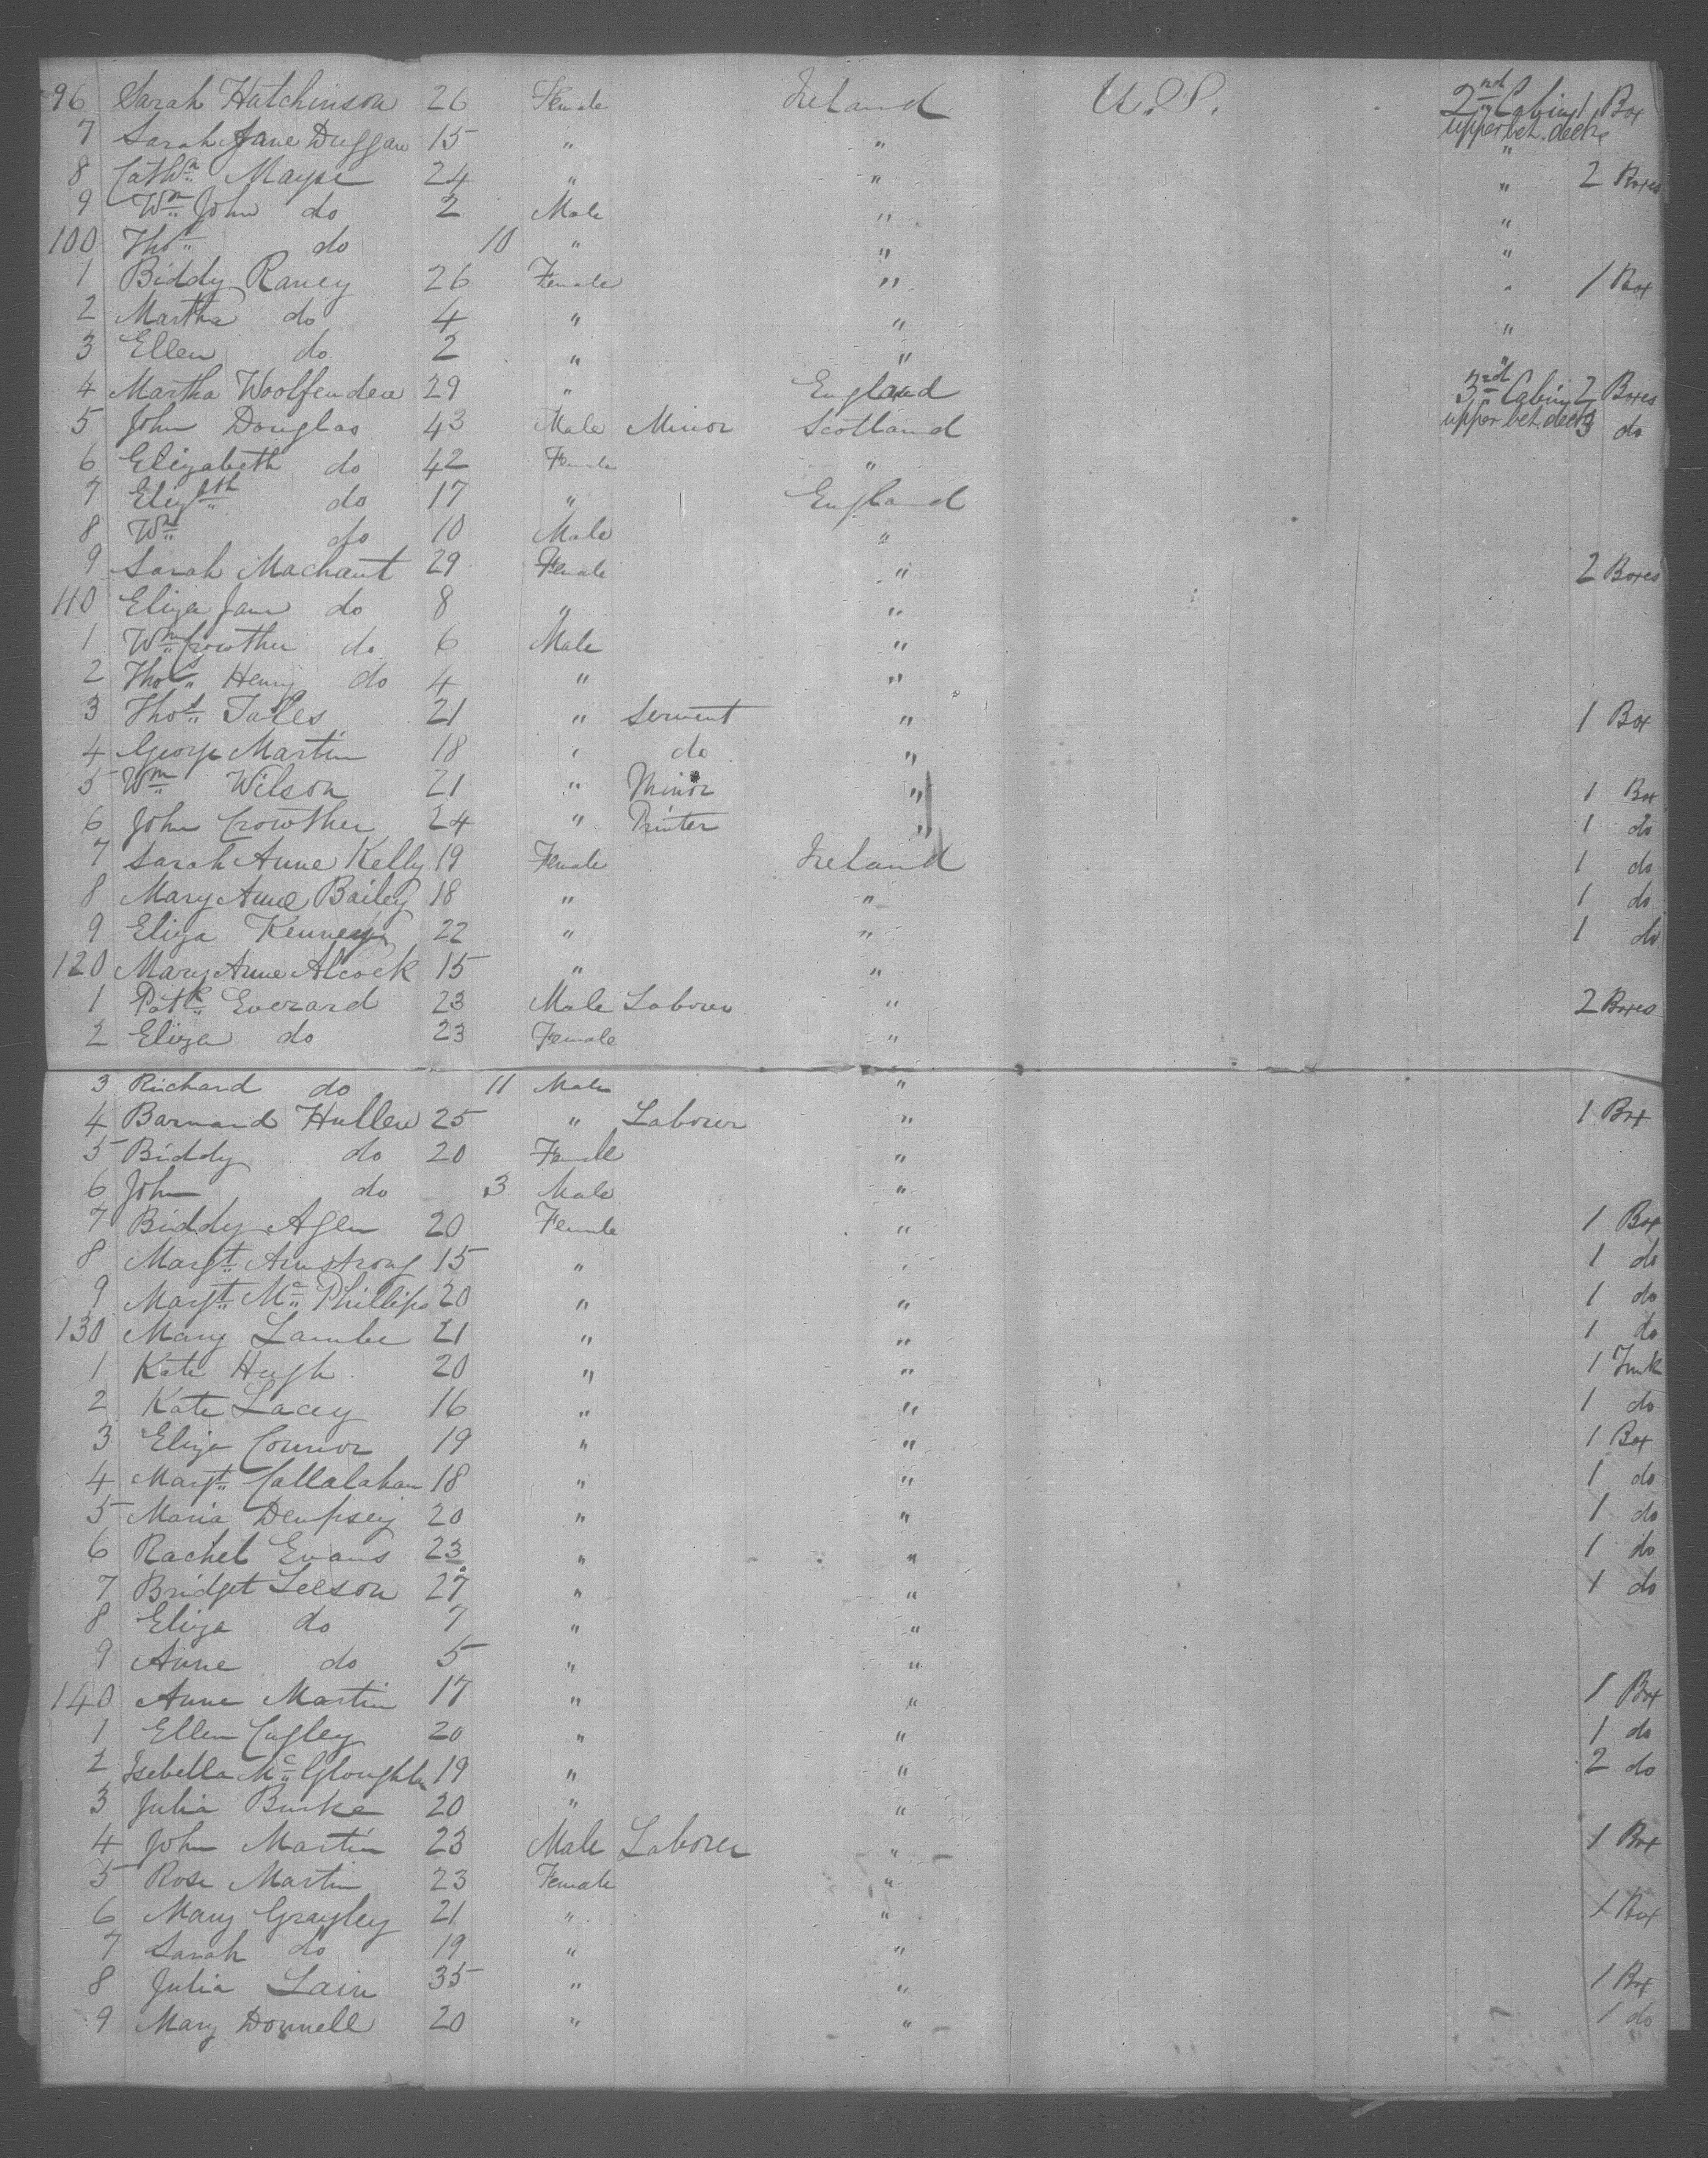 96 Sarah Hutchinson 26 Female Ireland U.S. 2nd Cabin 1 Box
7 Sarah Jane Duggan 15 " " upper bet. decks "
8 Cathn Mayse 24 " " " 2 Boxes
9 Wm John do 2 Male " "
100 Thos do 10 " " "
1 Biddy Raney 26 Female " " 1 Box
2 Martha do 4 " " "
3 Ellen do 2 " " "
4 Martha Woolfenden 29 " England 3rd Cabin 2 Boxes
5 John Douglas 43 Male Minor Scotland upper bet. decks 3 do
6 Elizabeth do 42 Female "
7 Elizbth do 17 " England
8 Wm do 10 Male "
9 Sarah Machant 29 Female " 2 Boxes
110 Eliza Jane do 8 " "
1 Wm Crowther do 6 Male "
2 Thos Henry do 4 " "
3 Thos 21 " Servent " 1 Box
4 George Martin 18 " do "
5 Wm Wilson 21 " Minor " 1 Box
6 John Crowther 24 " Printer " 1 do
7 Sarah Anne Kelly 19 Female Ireland 1 do
8 Mary Anne Bailey 18 " " 1 do
9 Eliza Kenney 22 " " 1 do
120 Mary Anne Alcock 15 " "
1 Patk Everard 23 Male Laborer " 2 Boxes
2 Eliza do 23 Female "
3 Richard do 11 Male "
4 Barnard Hullen 25 " Laborer " 1 Box
5 Biddy do 20 Female "
6 John do 3 Male "
7 Biddy Agen 20 Female " 1 Box
8 Margt Armstrong 15 " " 1 do
9 Margt Mc Phillips 20 " " 1 do
130 Mary Lambe 21 " " 1 do
1 Kate Hugh 20 " " 1 Trunk
2 Kate Lacey 16 " " 1 do
3 Eliza Connor 19 " " 1 Box
4 Margt Callalahan 18 " " 1 do
5 Maria Dempsey 20 " " 1 do
6 Rachel Evans 23 " " 1 do
7 Bridget Leeson 27 " " 1 do
8 Eliza do 7 " "
9 Anne do 5 " "
140 Anne Martin 17 " " 1 Box
1 Ellen Cugley 20 " " 1 do
2 Isebella Mc Gloughlin 19 " " 2 do
3 Julia Burke 20 " "
4 John Martin 23 Male Laborer " 1 Box
5 Rose Martin 23 Female "
6 Mary Grayley 21 " " 1 Box
7 Sarah do 19 " "
8 Julia Lain 35 " " 1 Box
9 Mary Donnell 20 " " 1 do